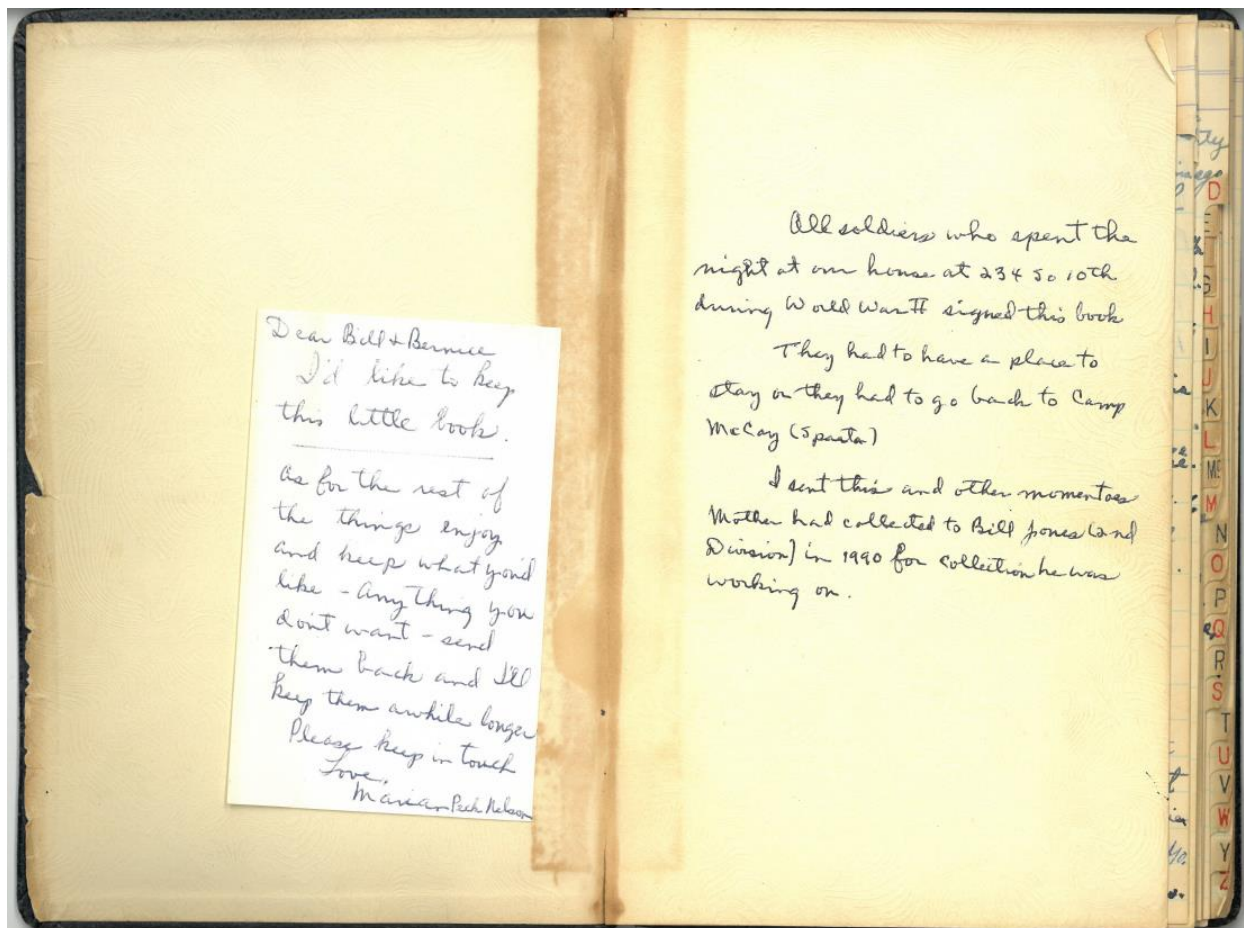 Dear Bill & Bernice
I'd like to keep
this little book.
as for the rest of
the things enjoy
and keep what you'd
like - anything you
don't want - send
them back and I'll
keep them awhile longer
Please keep in touch
Love,
Marian Peck Nelson
All soldiers who spent the
night at our house at 234 So 10th
during World War II signed this book
They had to have a place to
stay or they had to go back to Camp
McCoy (Sparta)
I sent this and other momentoes
Mother had collected to Bill Jones (2nd
Division) in 1990 for collection he was
working on.
D
E
G
H
I
J
K
L
Mc
M
N
O
P
Q
R
S
T
U
V
W
Y
Z